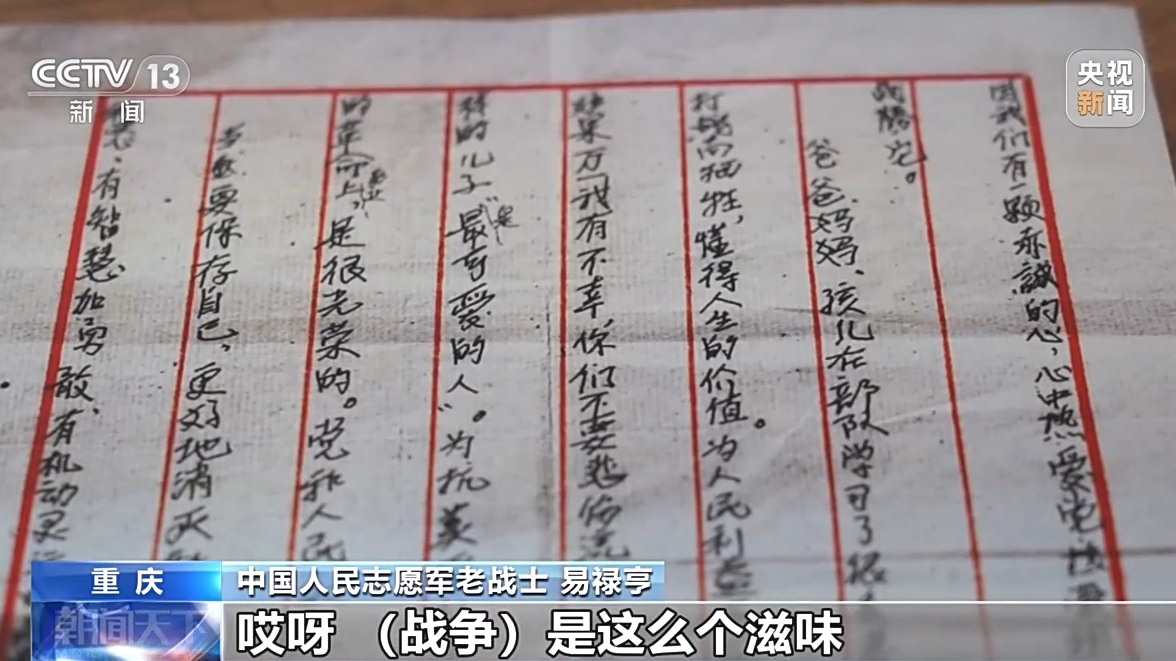 CCTV 13
新闻
央视
新闻
因我们有一颗赤誠的心，心中热爱党
战勝它。
爸爸、妈妈、孩儿在部队学习了很
打战而牺牲，懂得人生的价值。为人民利益
结果万一我有不幸，你们不要悲伤流
样的儿子是“最可爱的人”。为抗美
的革命上，是很光荣的。党和人民
要保存自己，更好地消灭
有智慧加勇敢，有机动灵
重庆
中国人民志愿军老战士 易禄亨
朝闻天下
哎呀 （战争）是这么个滋味